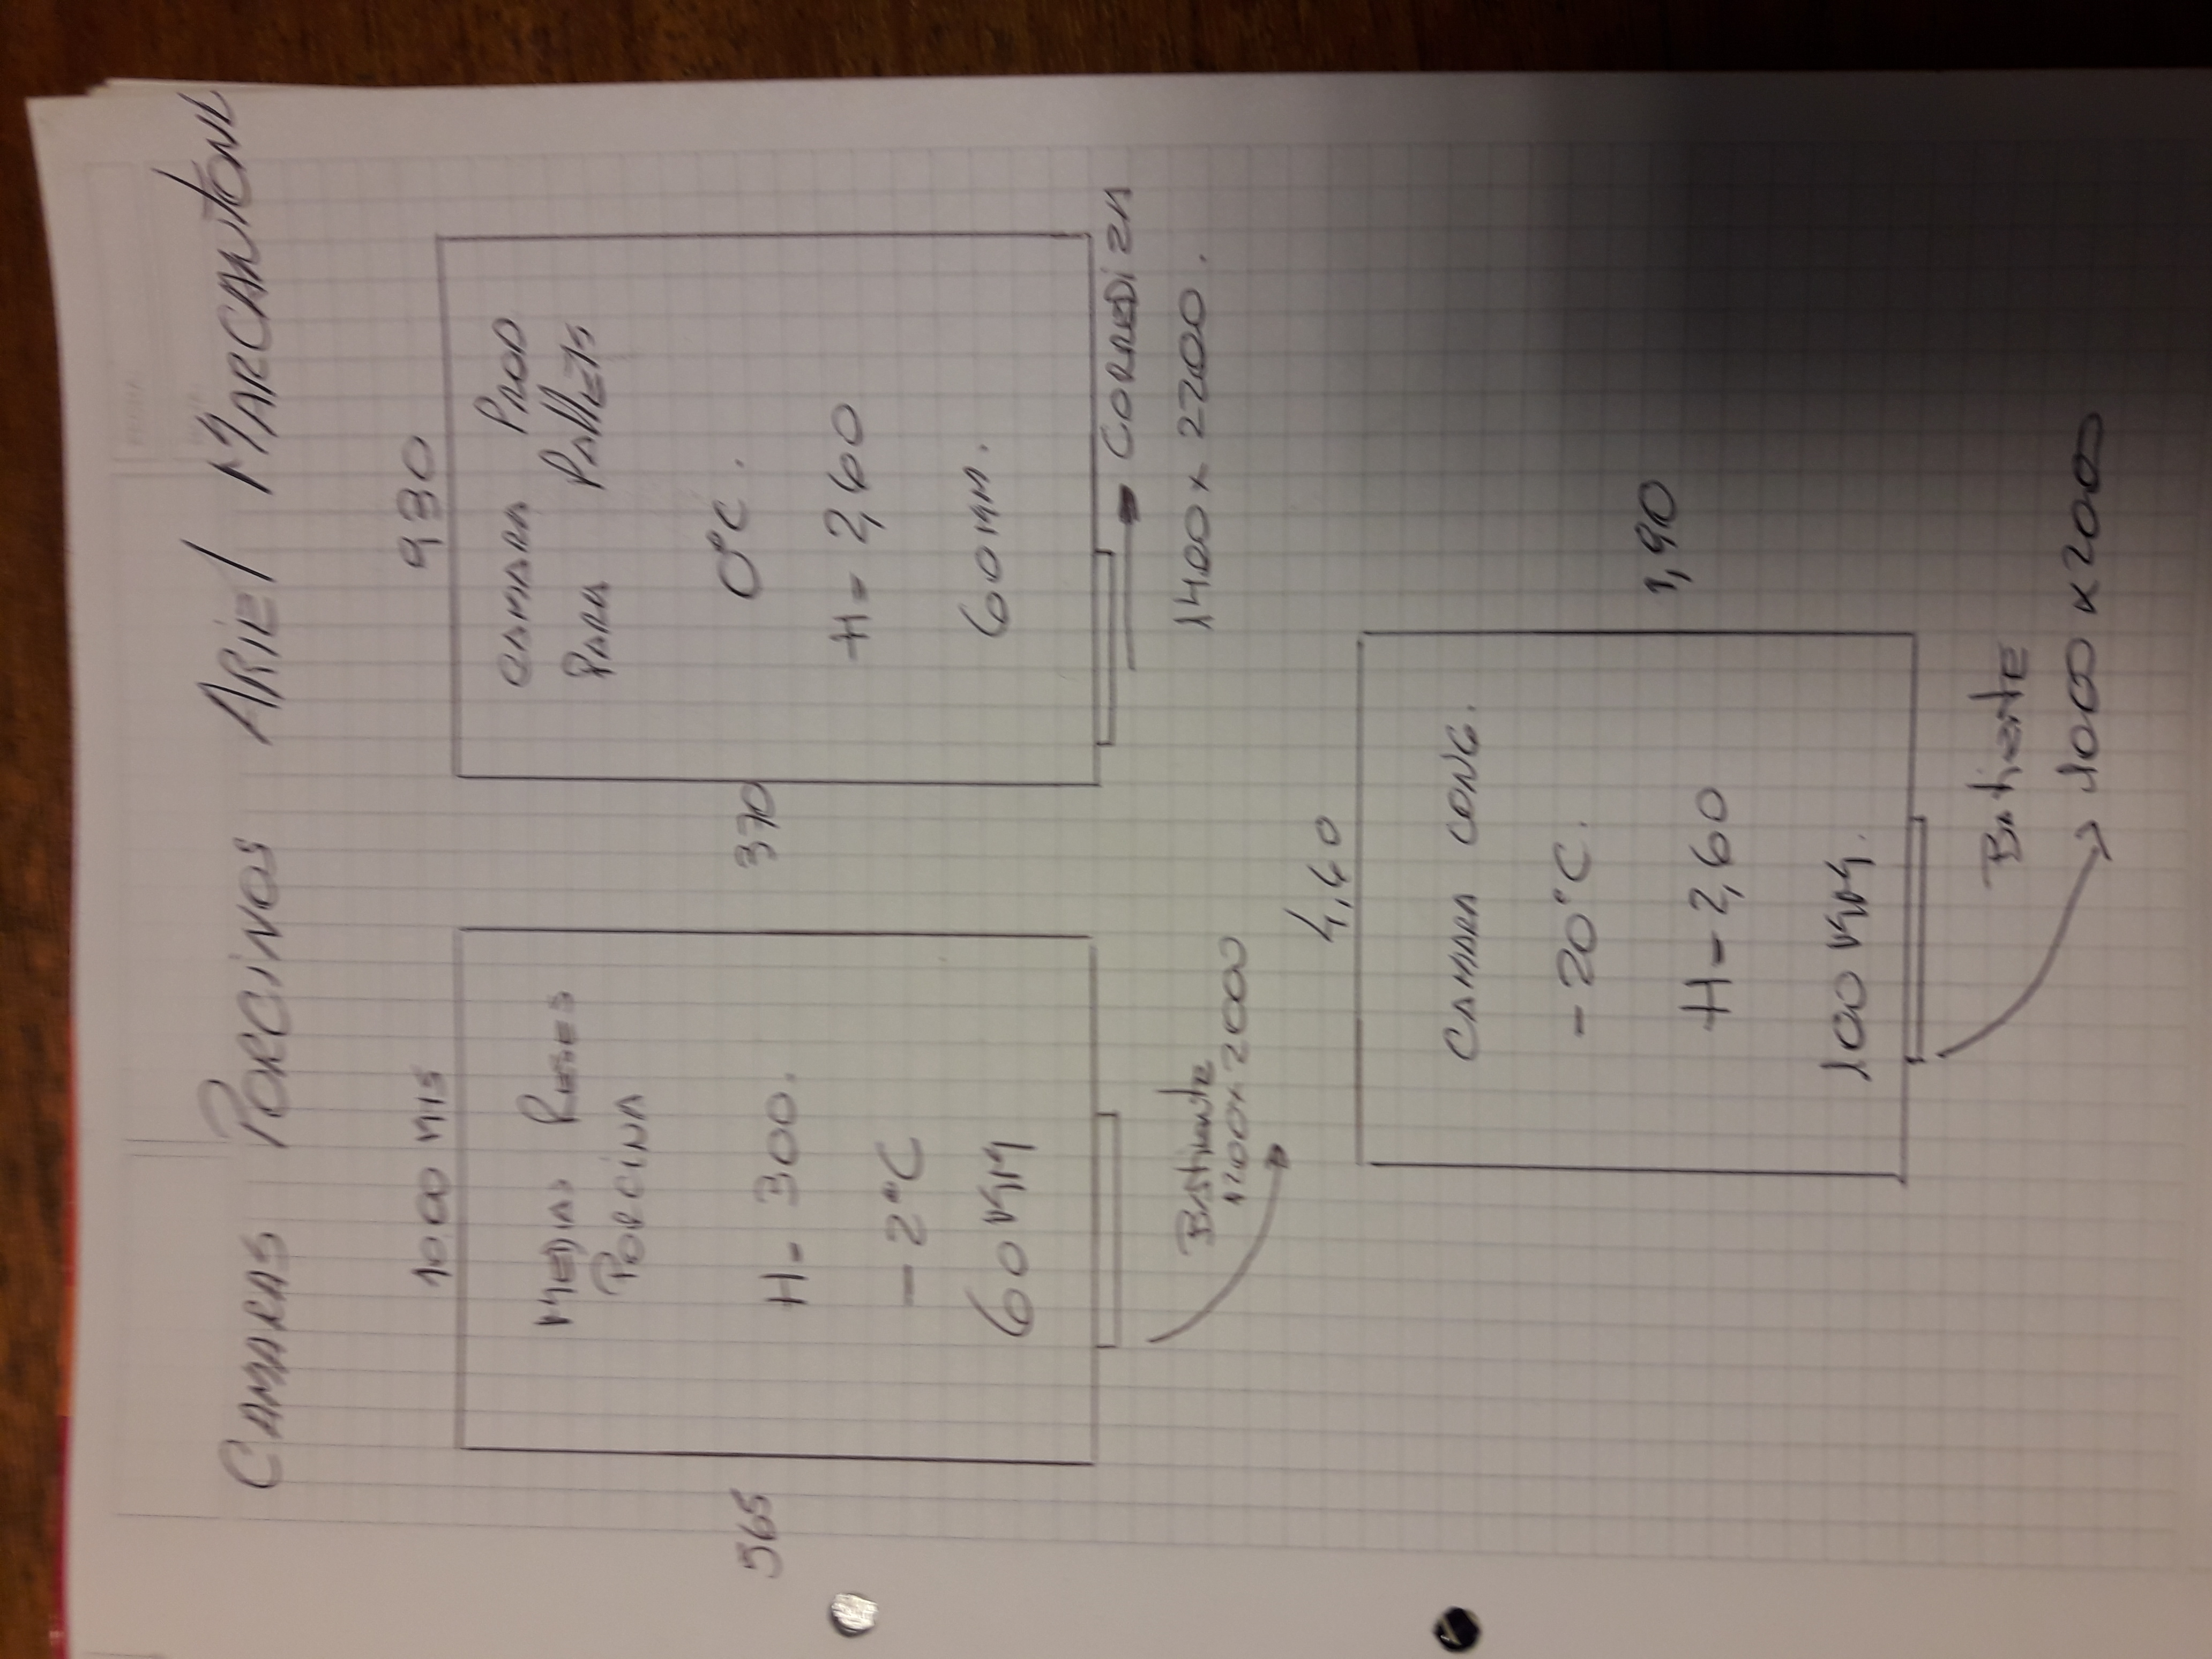 CAMARAS PORCINOS ARIEL MARCANTONI
1000 mts
565
MEDIAS RESES
PORCINA
H = 300.
- 2°C
60 MM
Batiente
1200 x 2000
980
370
CAMARA PROD
PARA PALLETS
0°C.
H = 2,60
60 MM.
CORREDIZA
1400 x 2200.
4,40
CAMARA CONG.
- 20°C.
H = 2,60
100 MM.
1,90
Batiente
1000 x 2000